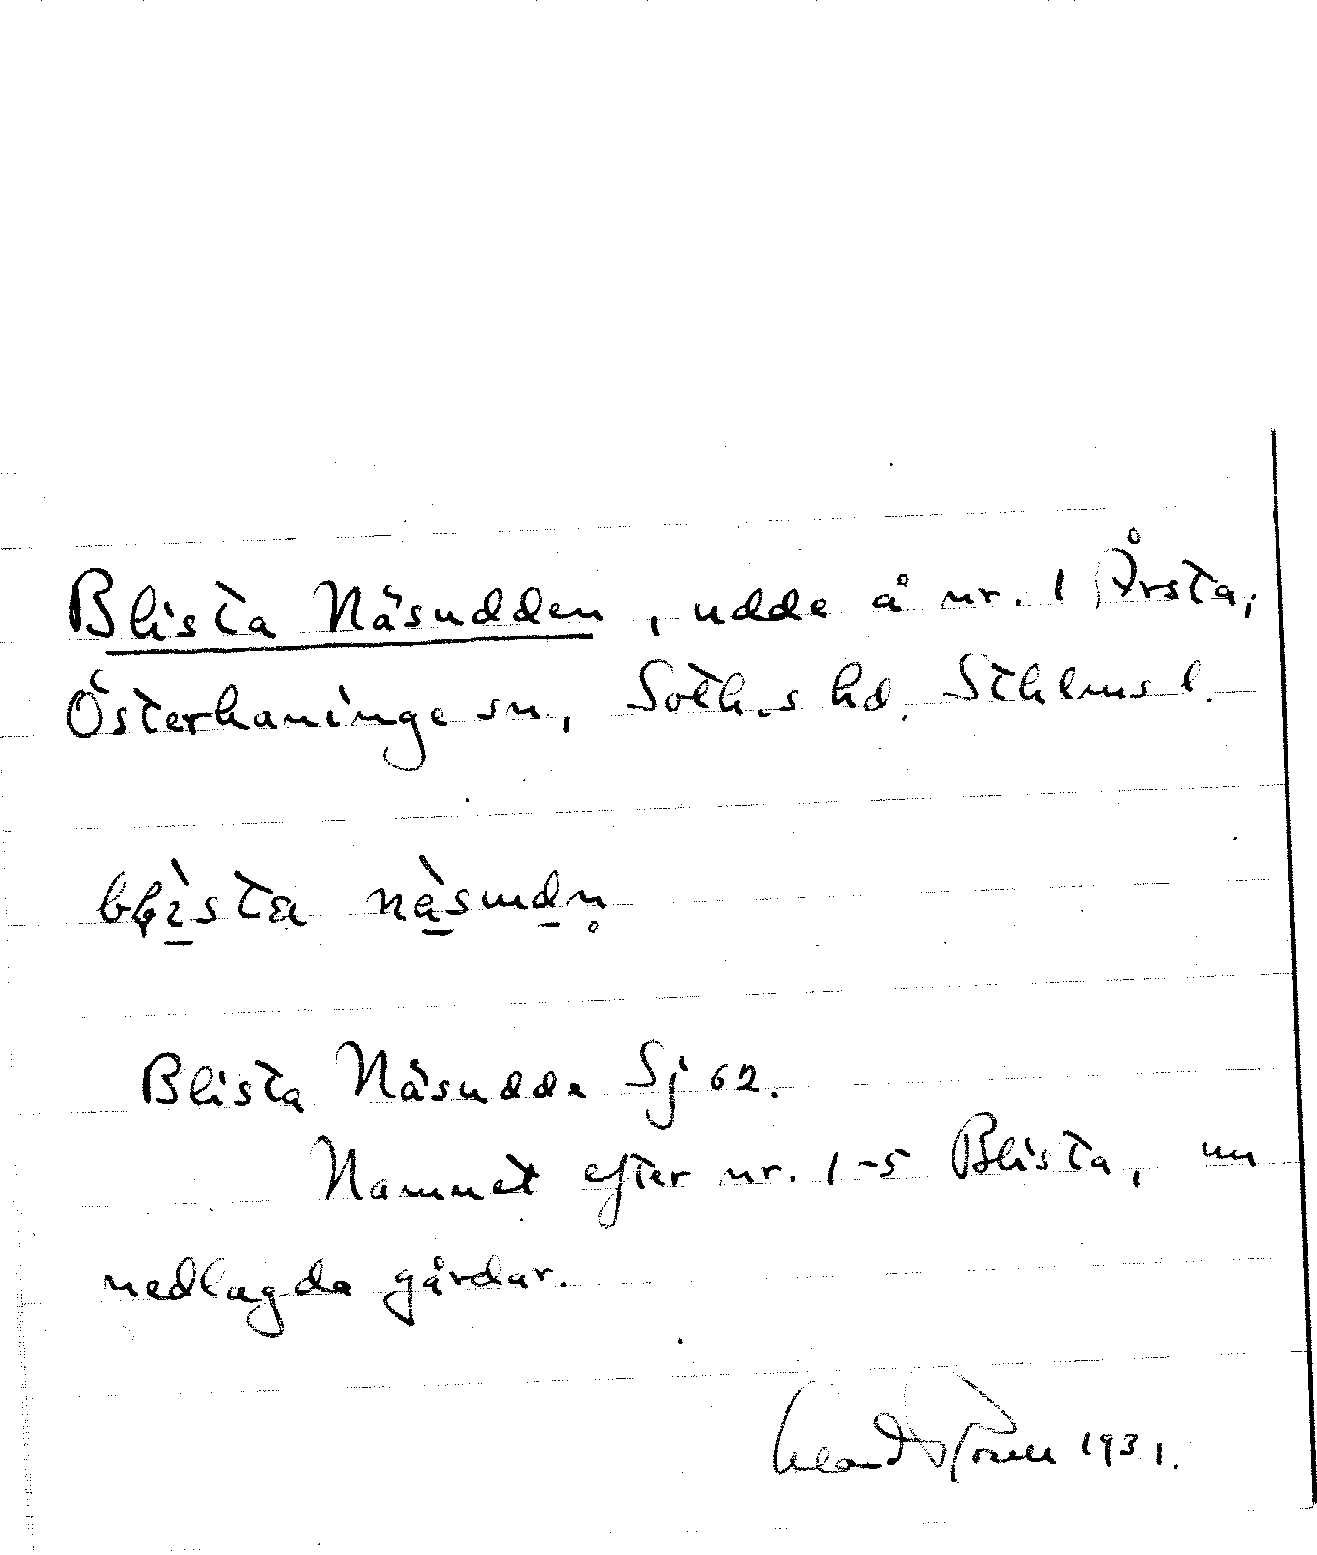 Blista Näsudden, udde å nr. 1 Årsta,
Österhaninge sn, Soth.s hd. Sthlms l.
nä̀sudn̥
Blista Näsudde Sj 62.
Namnet efter nr. 1-5 Blista, nu
nedlagda gårdar.
1931.